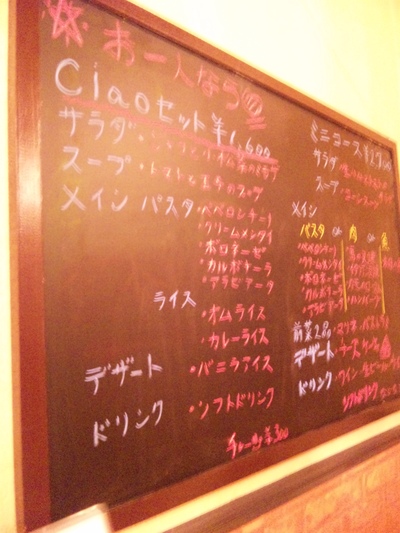 ☆お一人なら
Ciaoセット ¥1,600
サラダ・
スープ・トマトと玉子のスープ
メイン パスタ・ペペロンチーノ
・クリームメンタイ
・ボロネーゼ
・カルボナーラ
・アラビアータ
ライス
・オムライス
・カレーライス
デザート ・バニラアイス
ドリンク ・ソフトドリンク
チャージ¥300
ミニコース
サラダ
スープ・コーンスープ
メイン
パスタ or 肉 or 魚
・ペペロンチーノ
・クリームメンタイ
・ボロネーゼ
・カルボナーラ
・アラビアータ
・ハンバーグ
前菜2品
デザート・チーズケーキ
ドリンク・ワイン・生ビール
ソフトドリンク